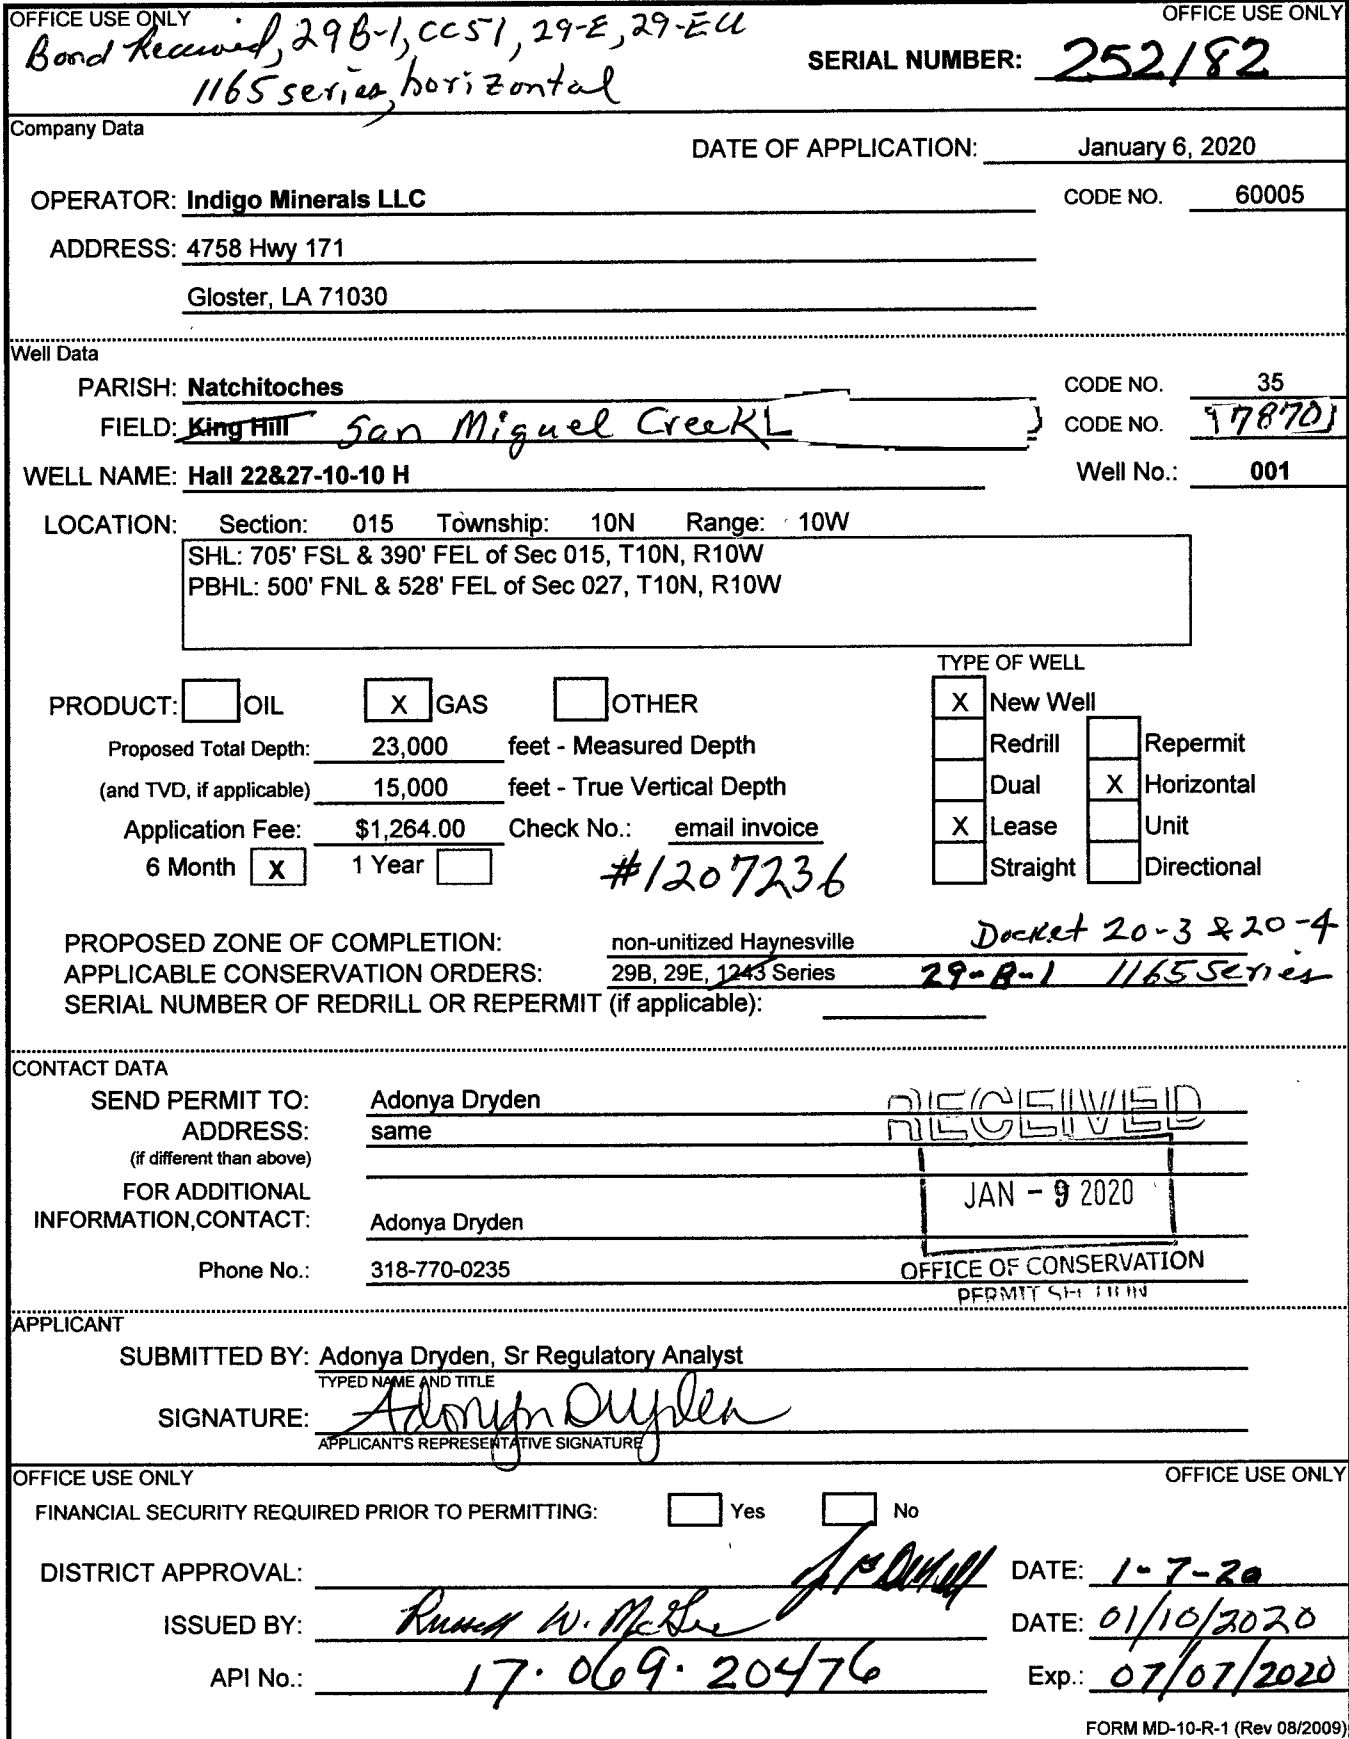 OFFICE USE ONLY OFFICE USE ONLY
Bond Received, 29B-1, CC51, 29-E, 29-EU
1165 series, horizontal
SERIAL NUMBER: 252182
Company Data
DATE OF APPLICATION: January 6, 2020
OPERATOR: Indigo Minerals LLC CODE NO. 60005
ADDRESS: 4758 Hwy 171
Gloster, LA 71030
Well Data
PARISH: Natchitoches CODE NO. 35
FIELD: King Hill San Miguel Creek CODE NO. 7870
WELL NAME: Hall 22&27-10-10 H Well No.: 001
LOCATION: Section: 015 Township: 10N Range: 10W
SHL: 705' FSL & 390' FEL of Sec 015, T10N, R10W
PBHL: 500' FNL & 528' FEL of Sec 027, T10N, R10W
TYPE OF WELL
PRODUCT: OIL X GAS OTHER X New Well
Proposed Total Depth: 23,000 feet - Measured Depth Redrill Repermit
(and TVD, if applicable) 15,000 feet - True Vertical Depth Dual X Horizontal
Application Fee: $1,264.00 Check No.: email invoice X Lease Unit
6 Month X 1 Year #1207236 Straight Directional
PROPOSED ZONE OF COMPLETION: non-unitized Haynesville Docket 20-3 & 20-4
APPLICABLE CONSERVATION ORDERS: 29B, 29E, 1243 Series 29-B-1 1165 Series
SERIAL NUMBER OF REDRILL OR REPERMIT (if applicable):
CONTACT DATA
SEND PERMIT TO: Adonya Dryden
ADDRESS: same
(if different than above)
FOR ADDITIONAL
INFORMATION,CONTACT: Adonya Dryden
Phone No.: 318-770-0235
RECEIVED
JAN - 9 2020
OFFICE OF CONSERVATION
PERMIT SECTION
APPLICANT
SUBMITTED BY: Adonya Dryden, Sr Regulatory Analyst
TYPED NAME AND TITLE
SIGNATURE: Adonya Dryden
APPLICANT'S REPRESENTATIVE SIGNATURE
OFFICE USE ONLY OFFICE USE ONLY
FINANCIAL SECURITY REQUIRED PRIOR TO PERMITTING: Yes No
DISTRICT APPROVAL: DATE: 1-7-20
ISSUED BY: Russell W. McGee DATE: 01/10/2020
API No.: 17.069.20476 Exp.: 07/07/2020
FORM MD-10-R-1 (Rev 08/2009)